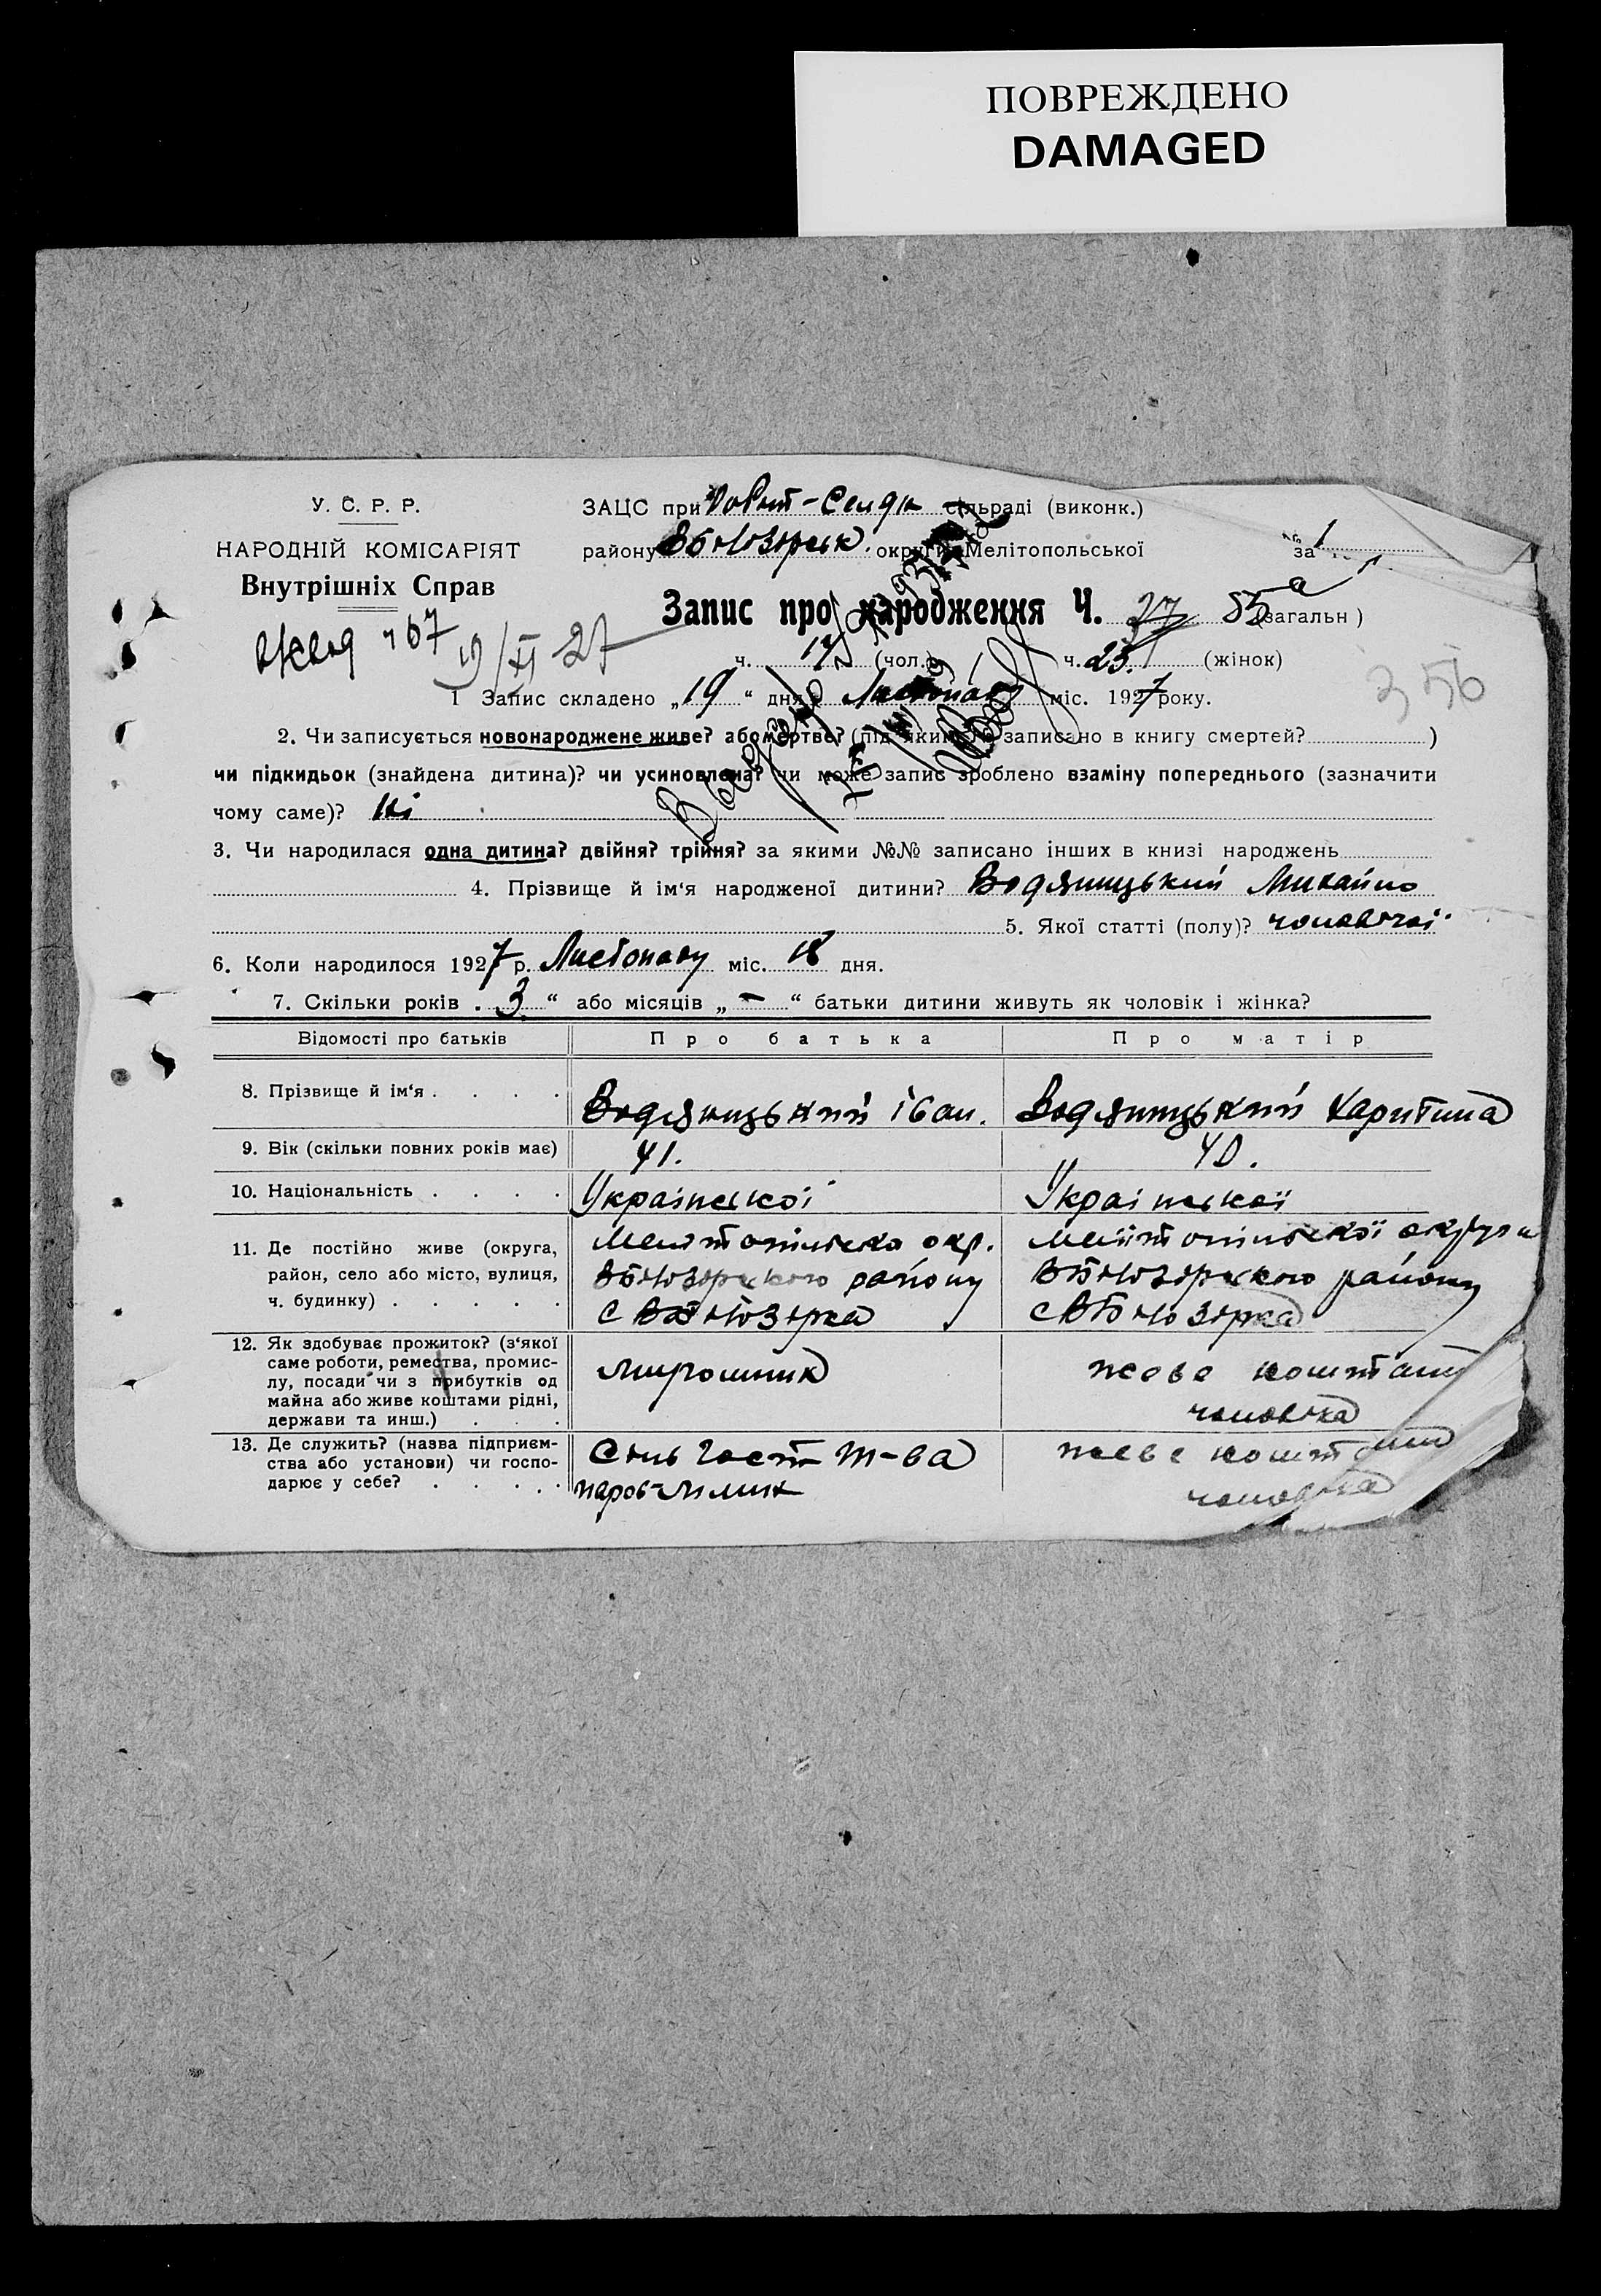 ПОВРЕЖДЕНО
DAMAGED
У. С. Р. Р.
НАРОДНІЙ КОМІСАРІЯТ
Внутрішніх Справ
ЗАЦС при сільраді (виконк.)
району округи Мелітопольської
за 1
Запис про народження Ч. 37 85а (загальн)
ч. 17 (чол.) ч. 23. (жінок)
167 19/XI 27
356
1 Запис складено „19“ дня Листопаду міс. 1927 року.
2. Чи записується новонароджене живе? або мертве? (під яким записано в книгу смертей? )
чи підкидьок (знайдена дитина)? чи усиновлена? чи може запис зроблено взаміну попереднього (зазначити
чому саме)? Ні
3. Чи народилася одна дитина? двійня? трійня? за якими №№ записано інших в книзі народжень
4. Прізвище й ім‘я народженої дитини? Водяницький Михайло
5. Якої статті (полу)? чоловічої
6. Коли народилося 1927 р. Листопаду міс. 18 дня.
7. Скільки років „3“ або місяців „-“ батьки дитини живуть як чоловік і жінка?
Відомості про батьків Про батька Про матір
8. Прізвище й ім‘я . . . . Водяницький Іван. Водяницький Харитина
9. Вік (скільки повних років має) 41. 40.
10. Національність . . . . Української Української
11. Де постійно живе (округа, район, село або місто, вулиця, ч. будинку) . . . . .
Мелітопільська окр. району с
Мелітопільської округи району с
12. Як здобуває прожиток? (з‘якої саме роботи, ремества, промислу, посади чи з прибутків од майна або живе коштами рідні, держави та инш.) . . .
мирошник
живе коштами чоловіка
13. Де служить? (назва підприємства або установи) чи господарює у себе? . . . . .
т-ва
живе коштами чоловіка